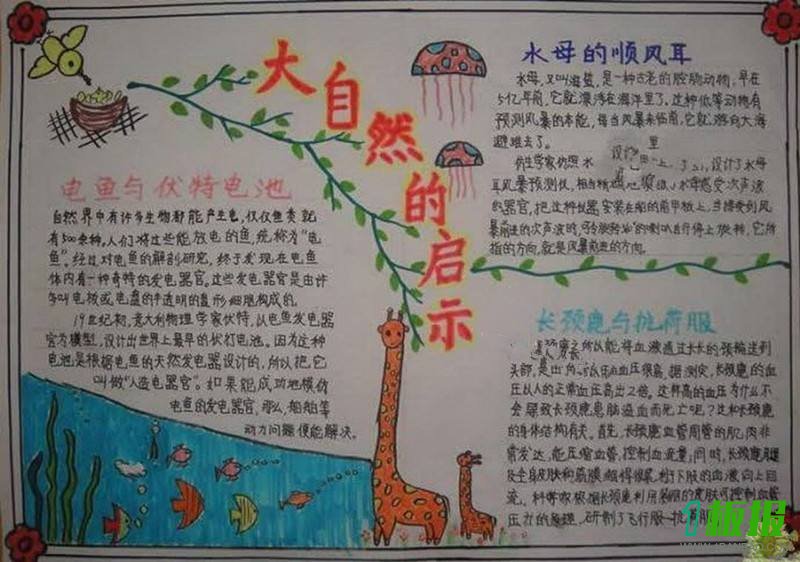 大自然的启示
电鱼与伏特电池
自然界中有许多生物都能产生电,仅仅鱼类就
有500余种,人们将这些能放电的鱼,统称为“电
鱼”。经过对电鱼的解剖研究,终于发现在电鱼
体内有一种奇特的发电器官。这些发电器官是由许
多叫电板或电盘的半透明的盘形细胞构成的。
19世纪初,意大利物理学家伏特,以电鱼发电器
官为模型,设计出世界上最早的伏打电池。因为这种
电池是根据电鱼的天然发电器设计的,所以把它
叫做“人造电器官”。如果能成功地模仿
电鱼的发电器官,那么,船舶等
动力问题便能解决。
水母的顺风耳
水母,又叫海蜇,是一种古老的腔肠动物,早在
5亿年前,它就漂浮在海洋里了。这种低等动物有
预测风暴的本能,每当风暴来临前,它就游向大海
避难去了。
仿生学家仿照水 设计了水母
耳风暴预测仪,相当精 水母感受次声波
的器官,把这种仪器安装在船的前甲板上,当接受到风
暴的次声波时,可令旋转 的喇叭自行停止旋转,它所
指的方向,就是风暴前进的方向。
长颈鹿与抗荷服
长颈鹿之所以能将血液通过长长的颈输送到
头部,是由 血压很高。据测定,长颈鹿的血
压比人的正常血压高出2倍。这样高的血压为什么不
会导致长颈鹿患脑溢血而死亡呢?这和长颈鹿
的身体结构有关。首先,长颈鹿血管周管的肌肉非
常发达,能压缩血管,控制血流量;同时,长颈鹿腿
及全身皮肤和筋膜绷得很紧,利于下肢的血液向上回
流。科学家根据长颈鹿利用 的皮肤可控制血管
压力的原理,研制了飞行服—抗荷服
板报